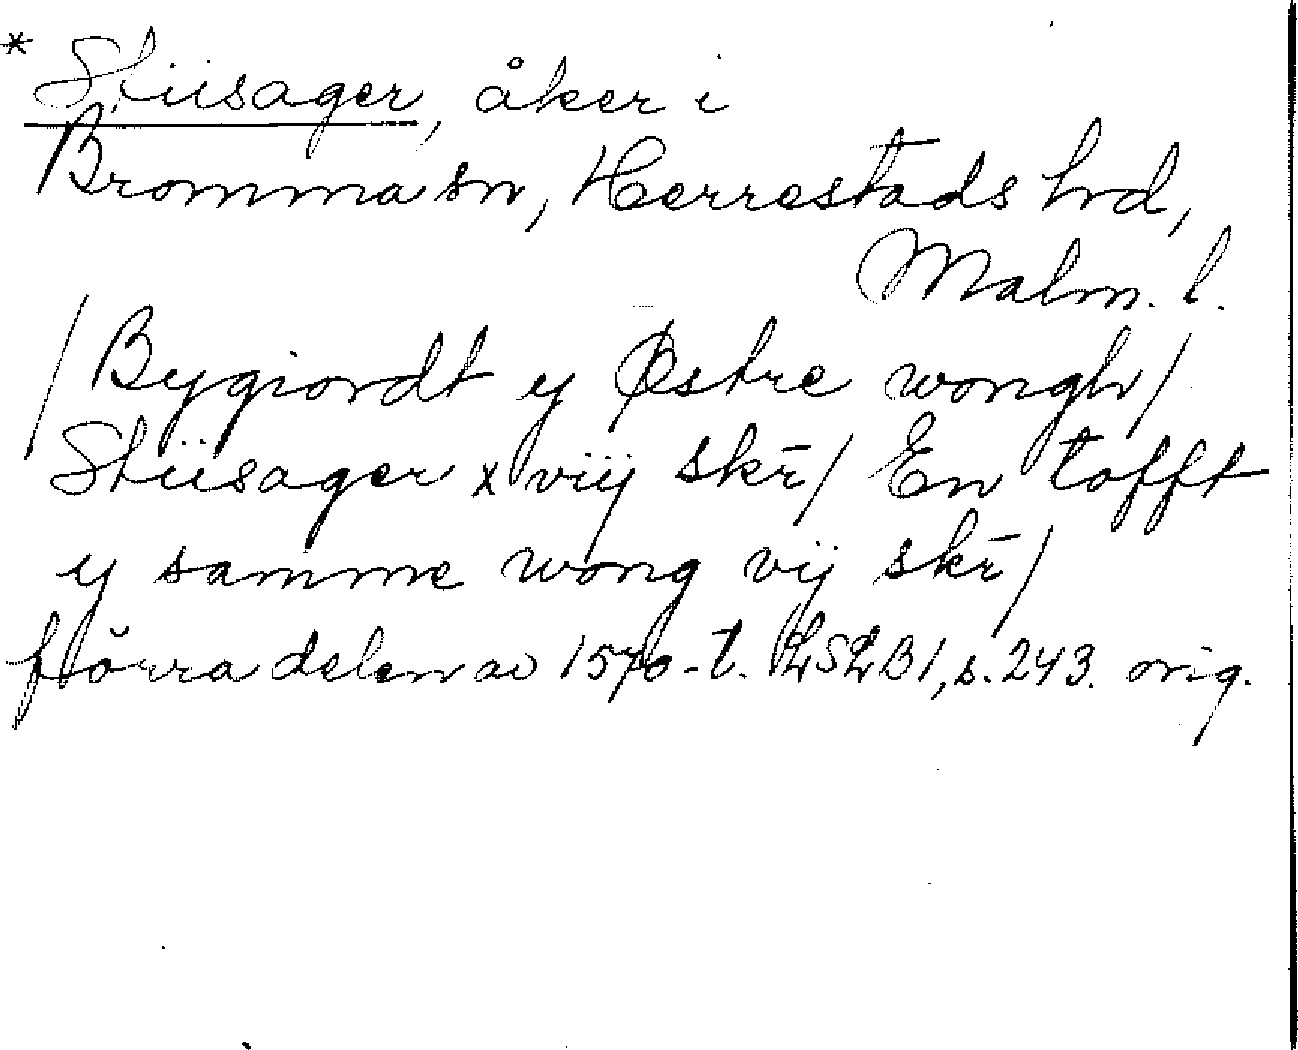 * Stiisager, åker i
Bromma sn, Herrestads hrd,
Malm. l.
/ Bygiordt y Østre wongh /
Stiisager x viij skr̄ / En tofft
y samme wong vij skr̄ /
förra delen av 1570-t. LSLB1, s. 243. orig.